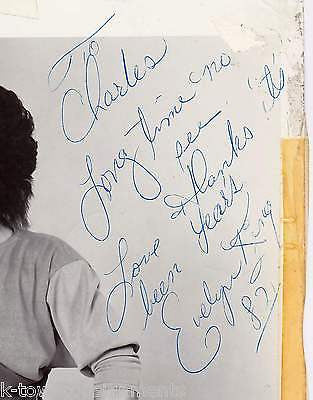 To
Charles
Long time no
see
Thanks it's
been Years
Love
Evelyn King
82